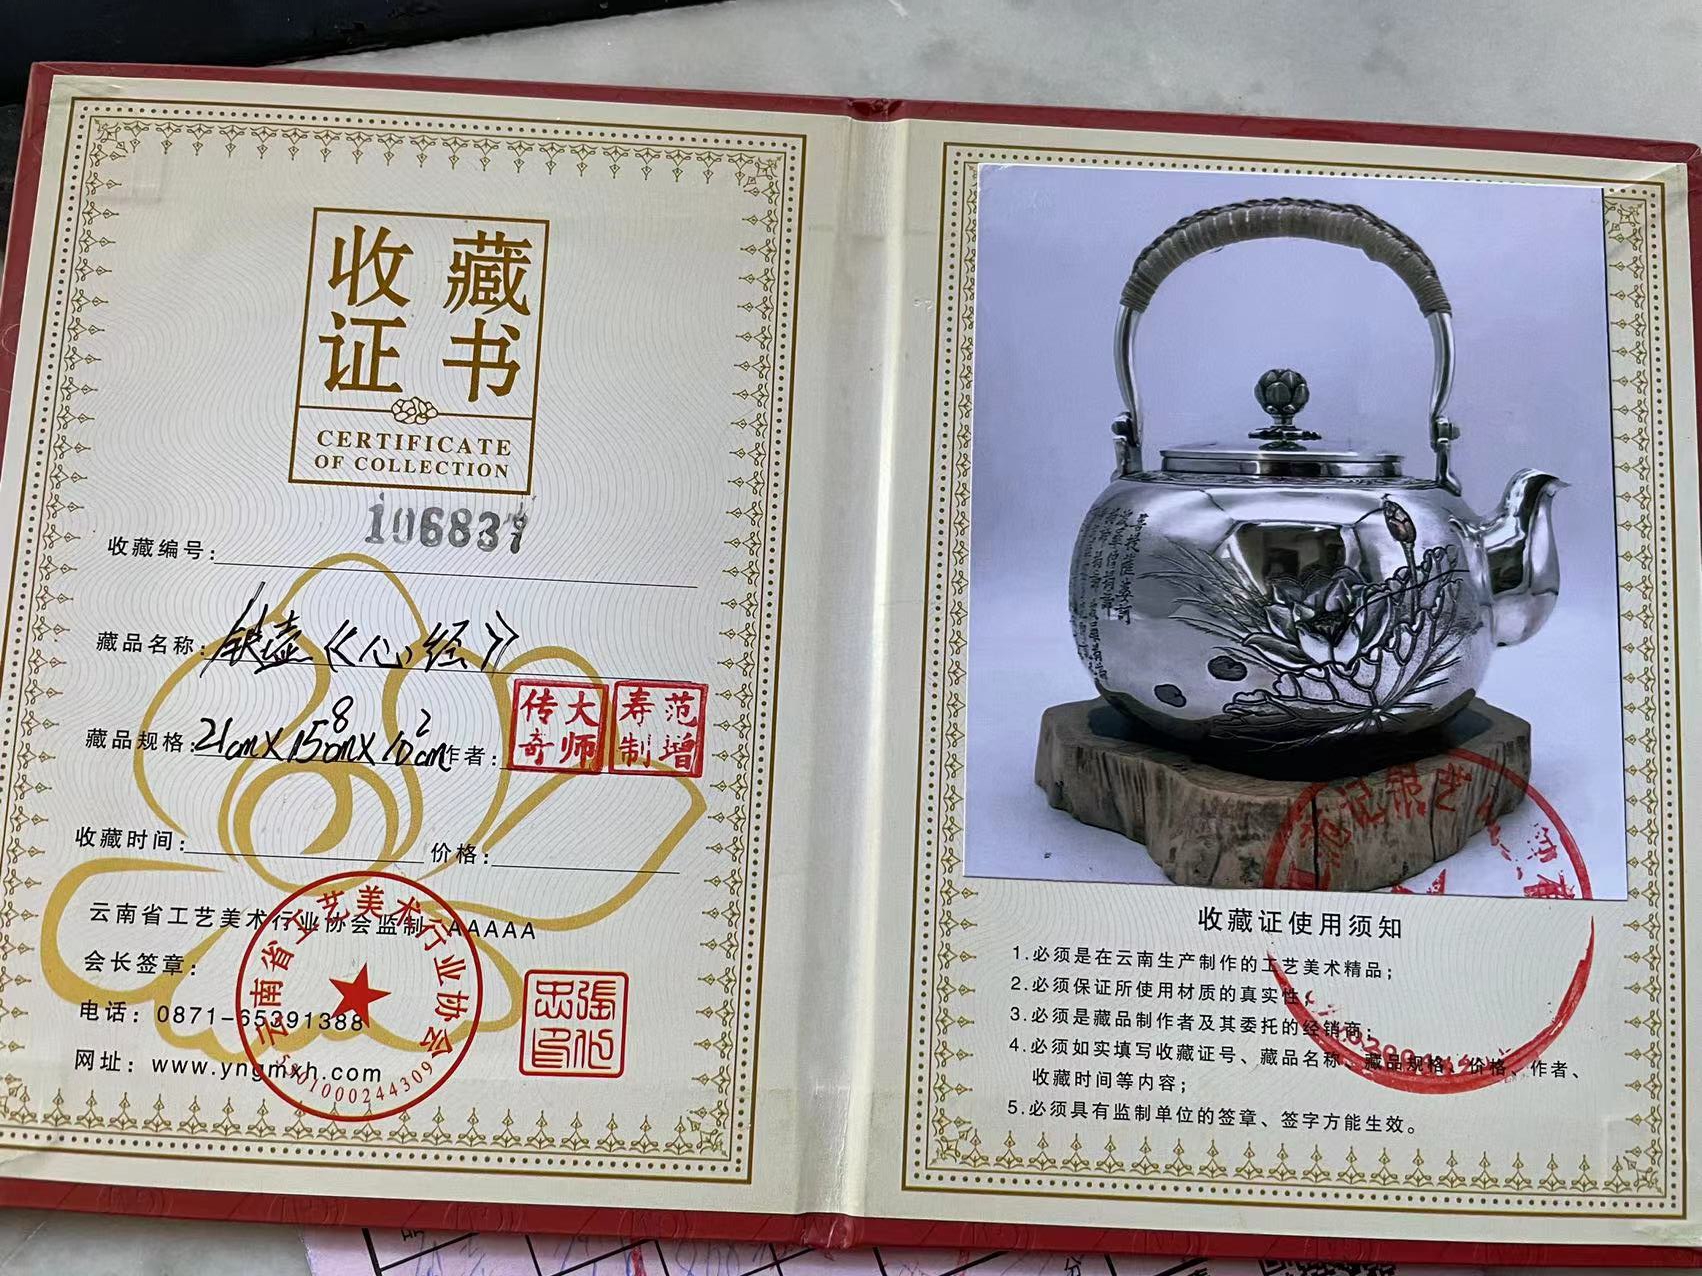 收藏
证书
CERTIFICATE
OF COLLECTION
收藏编号：106837
藏品名称：银壶《心经》
藏品规格：21cm×158cm×102cm 作者：
大师
传奇
范增
寿制
收藏时间： 价格：
云南省工艺美术行业协会监制 AAAAA
会长签章：
电话：0871-65391388
网址：www.yngmxh.com
云南省工艺美术行业协会
5301000244309
收藏证使用须知
1.必须是在云南生产制作的工艺美术精品；
2.必须保证所使用材质的真实性；
3.必须是藏品制作者及其委托的经销商；
4.必须如实填写收藏证号、藏品名称、藏品规格、价格、作者、
收藏时间等内容；
5.必须具有监制单位的签章、签字方能生效。